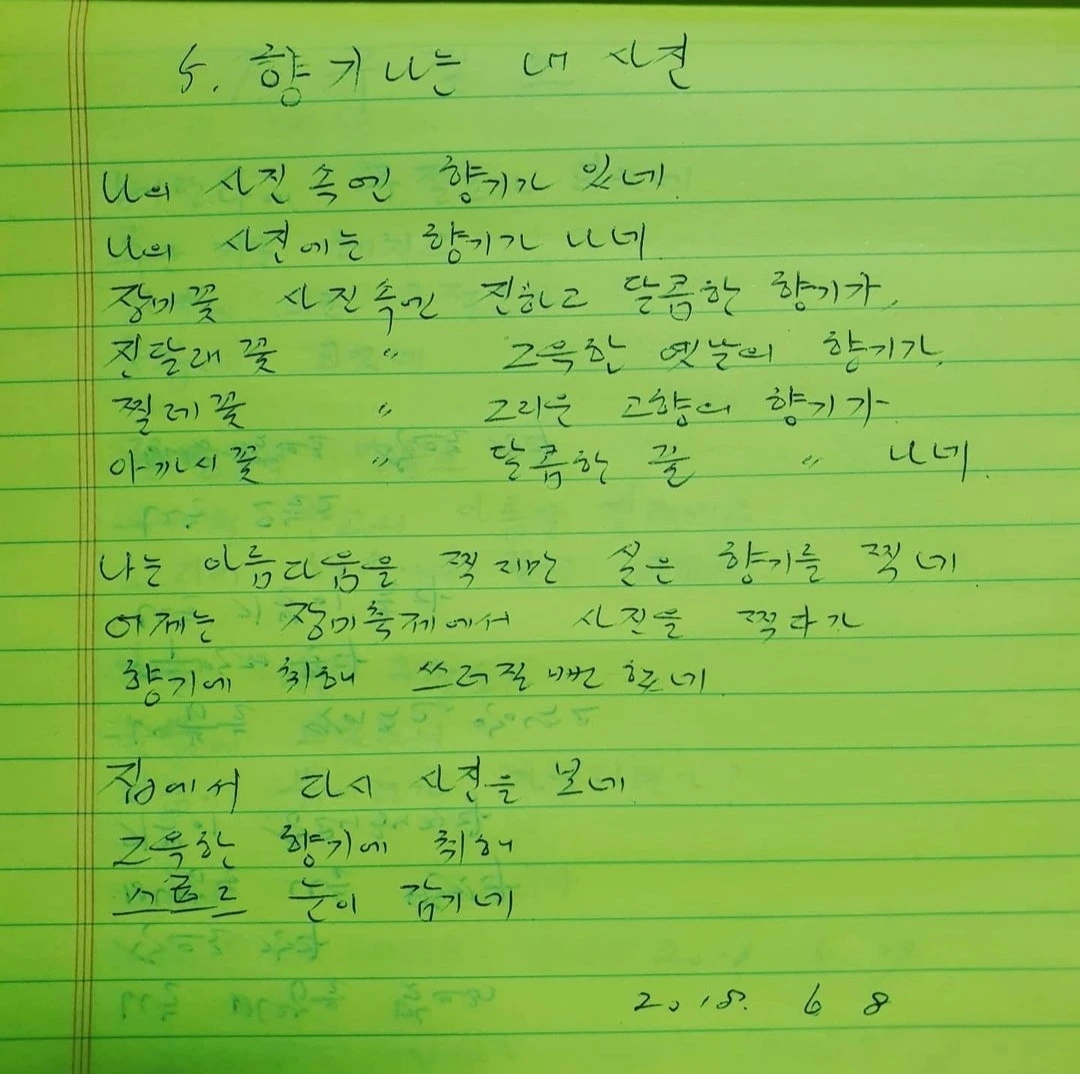 5. 향기나는 내 사진
나의 사진속엔 향기가 있네
나의 사진에는 향기가 나네
장미꽃 사진속엔 진하고 달콤한 향기가,
진달래꽃 〃 그윽한 옛날의 향기가,
찔레꽃 〃 그리운 고향의 향기가
아까시꽃 〃 달콤한 꿀 〃 나네.
나는 아름다움을 찍지만 실은 향기를 찍네
어제는 장미축제에서 사진을 찍다가
향기에 취해 쓰러질뻔 했네
집에서 다시 사진을 보네
그윽한 향기에 취해
스르르 눈이 감기네
2018. 6 8